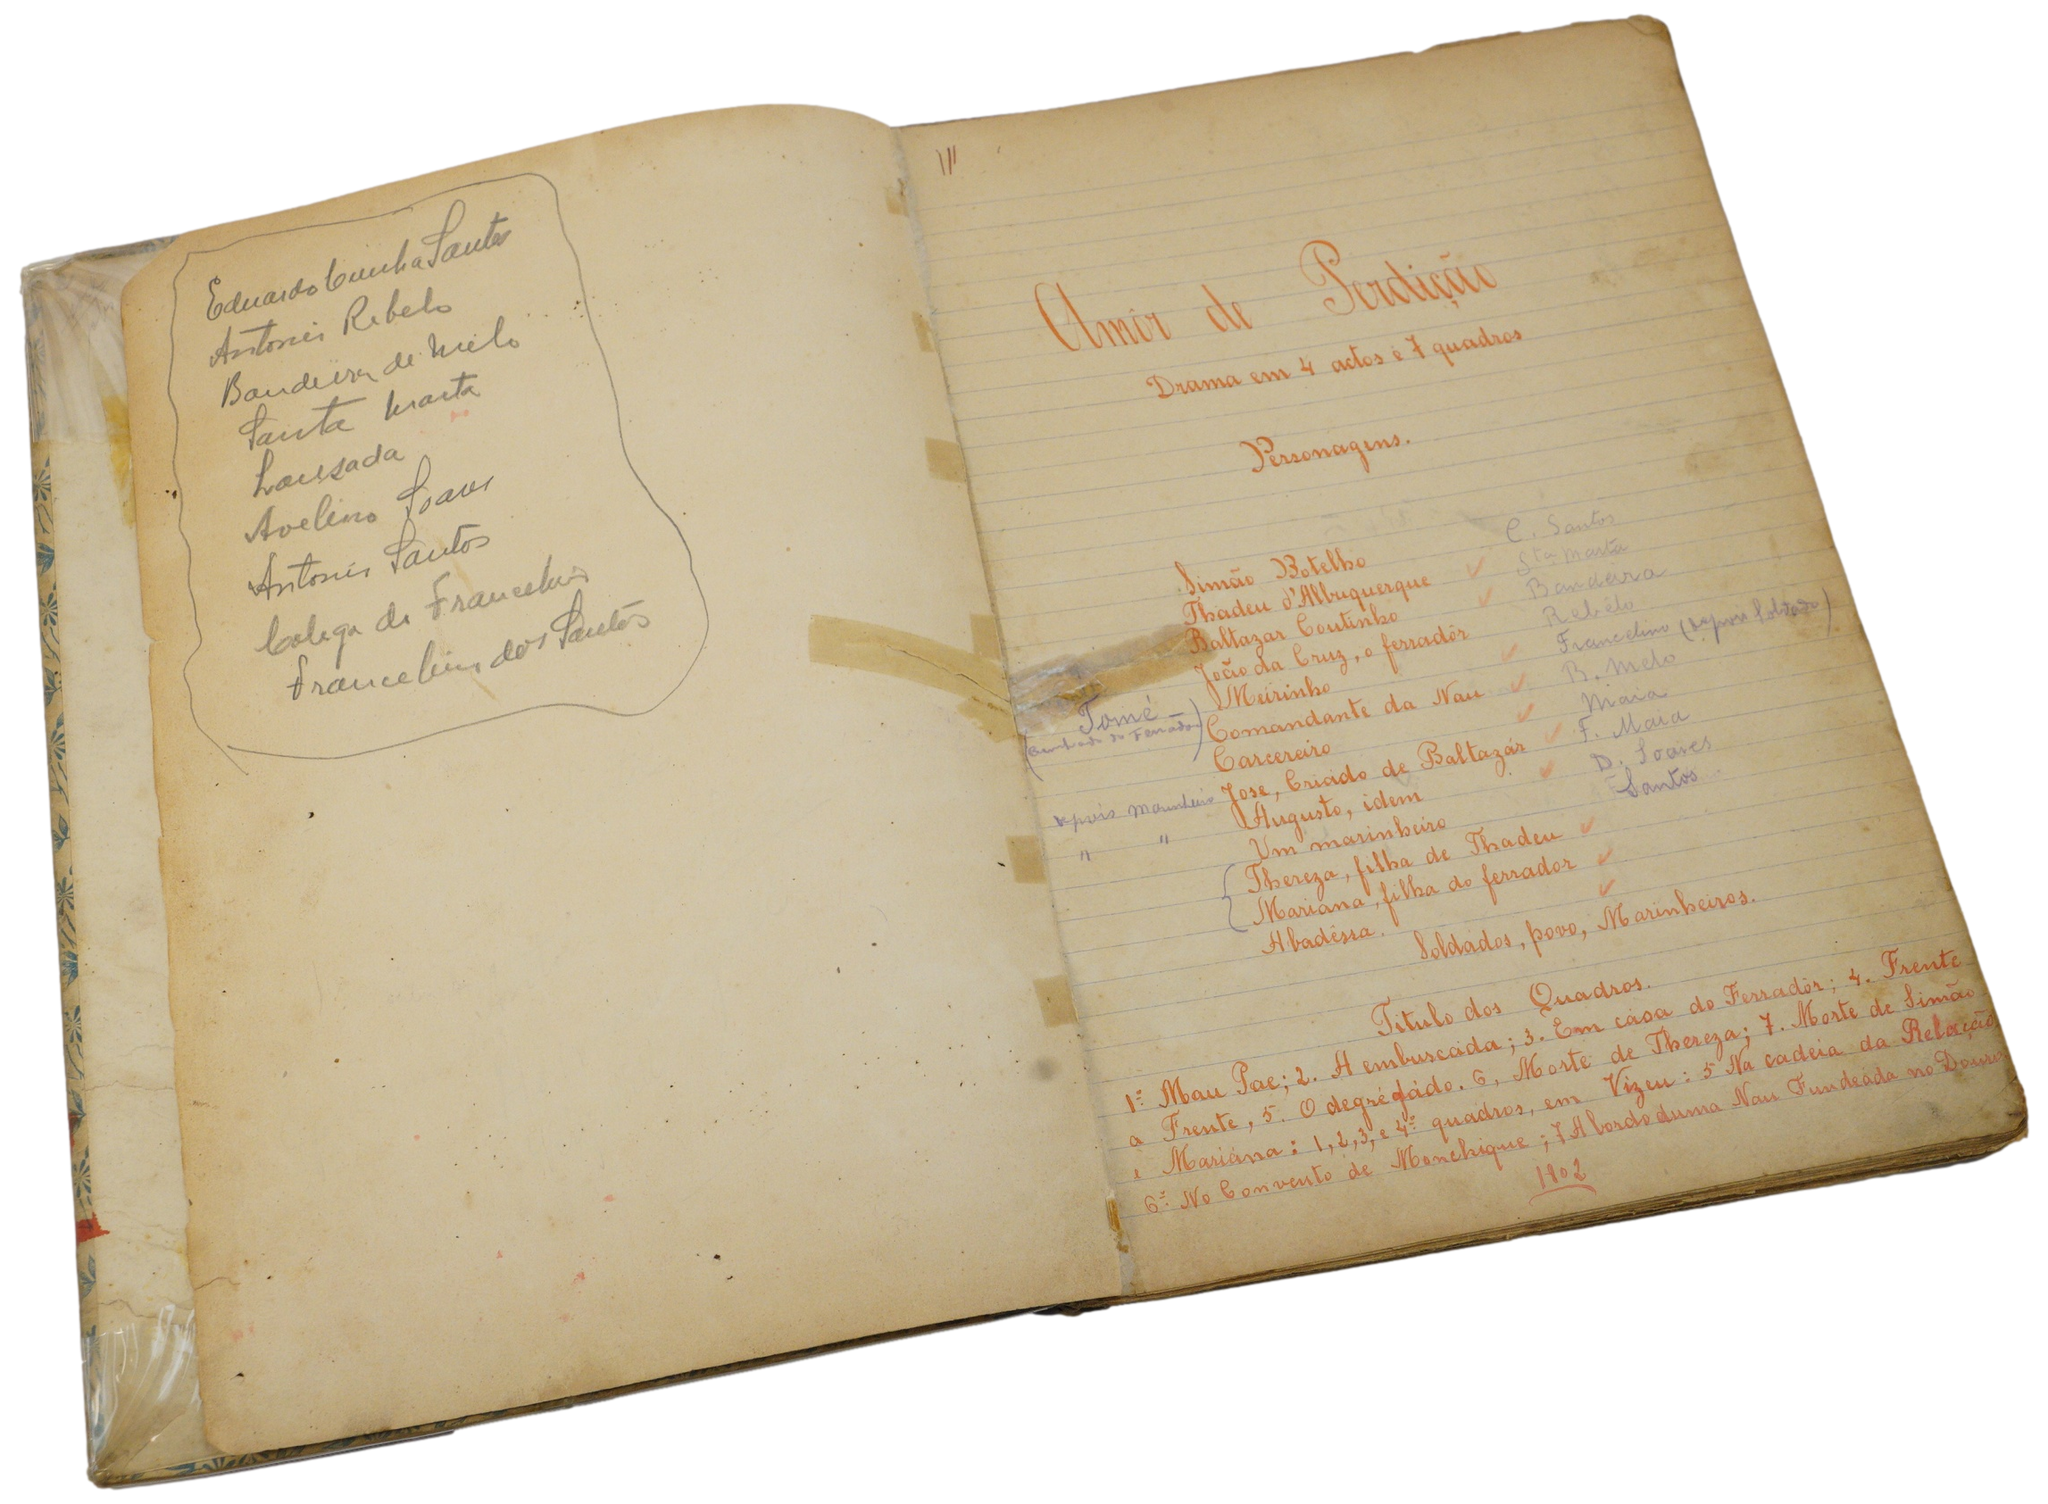 Eduardo Cunha Santos
Antonio Rebelo
Bandeira de Melo
Santa Marta
Lousada
Avelino Soares
Antonio Santos
Colega do Francelino
Francelino dos Santos
Amor de Perdição
Drama em 4 actos e 7 quadros
Personagens.
Simão Botelho C. Santos
Thadeu d'Albuquerque Sta Marta
Baltazar Coutinho Bandeira
João da Cruz, o ferradôr Rebélo
Meirinho Francelino (depois Soldado)
Tomé
(Cunhado do Ferrador)
Comandante da Nau B. Melo
Carcereiro Maia
José, Criádo de Baltazár F. Maia
depois marinheiro Augusto, idem D. Soares
" " Um marinheiro Santos
Thereza, filha de Thadeu
Mariana, filha do ferradôr
Abadêssa.
Soldados, povo, Marinheiros.
Titulo dos Quadros.
1º Mau Pae; 2. A embuscada; 3. Em cása do Ferradôr; 4. Frente
a Frente, 5. O degrédádo. 6, Morte de Thereza; 7. Morte de Simão
e Mariána: 1, 2, 3, e 4º quadros, em Vizeu: 5 Na cadeia da Relação
6º No Convento de Monchique; 7 A bordo duma Nau Fundeáda no Douro
1902